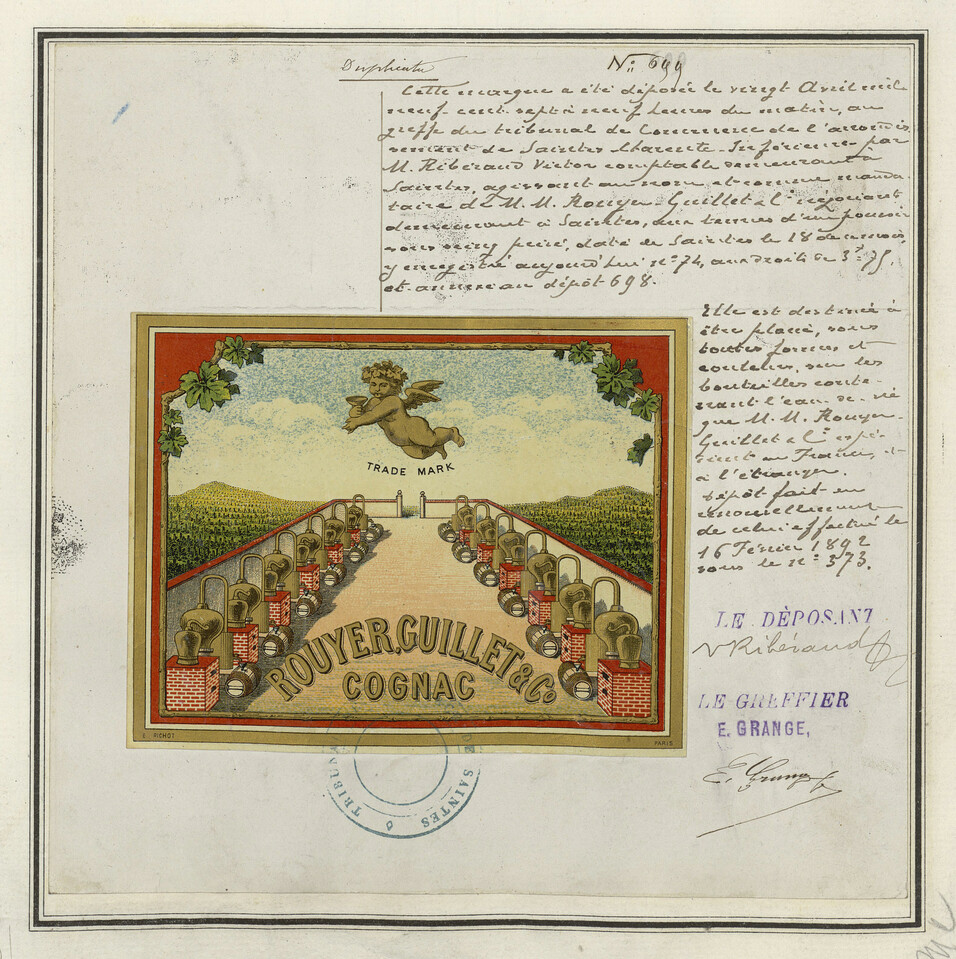 Duplicata
N: 699
Cette marque a été déposée le vingt Avril mil
neuf cent sept à neuf heures du matin, au
greffe du tribunal de Commerce de l'arrondis
sement de Saintes Charente-Inférieure par
M. Ribéraud Victor comptable demeurant à
Saintes, agissant au nom et comme manda
taire de M. M. Rouyer Guillet & Cie négociants
demeurant à Saintes, aux termes d'un pouvoir
sous seing privé, daté de Saintes le 18 de ce mois,
y enregistré aujourd'hui no 74, aux droits de 3f 75,
et annexé au dépôt 698.
Elle est destinée à
être placée, sous
toutes formes et
couleurs, sur les
bouteilles conte-
nant l'eau-de-vie
que M. M. Rouyer
Guillet & Cie expé-
dient en France et
à l'étranger.
Dépôt fait en
renouvellement
de celui effectué le
16 Février 1892
sous le no 373.
TRADE MARK
ROUYER, GUILLET & Co
COGNAC
PARIS
LE DÈPOSANT
V Ribéraud
LE GREFFIER
E. GRANGE,
E. Grange
TRIBUNAL DE SAINTES